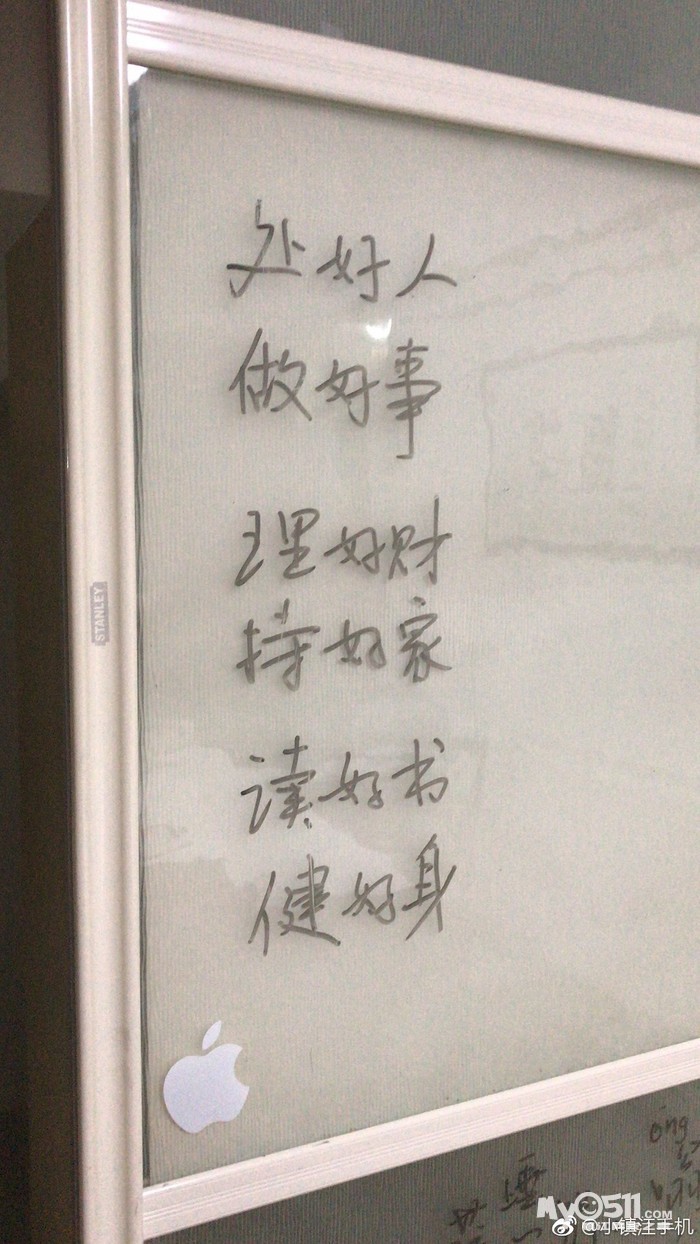 处好人
做好事
理好财
持好家
读好书
健好身
STANLEY
ong
MyO511.com
@小镇汪手机